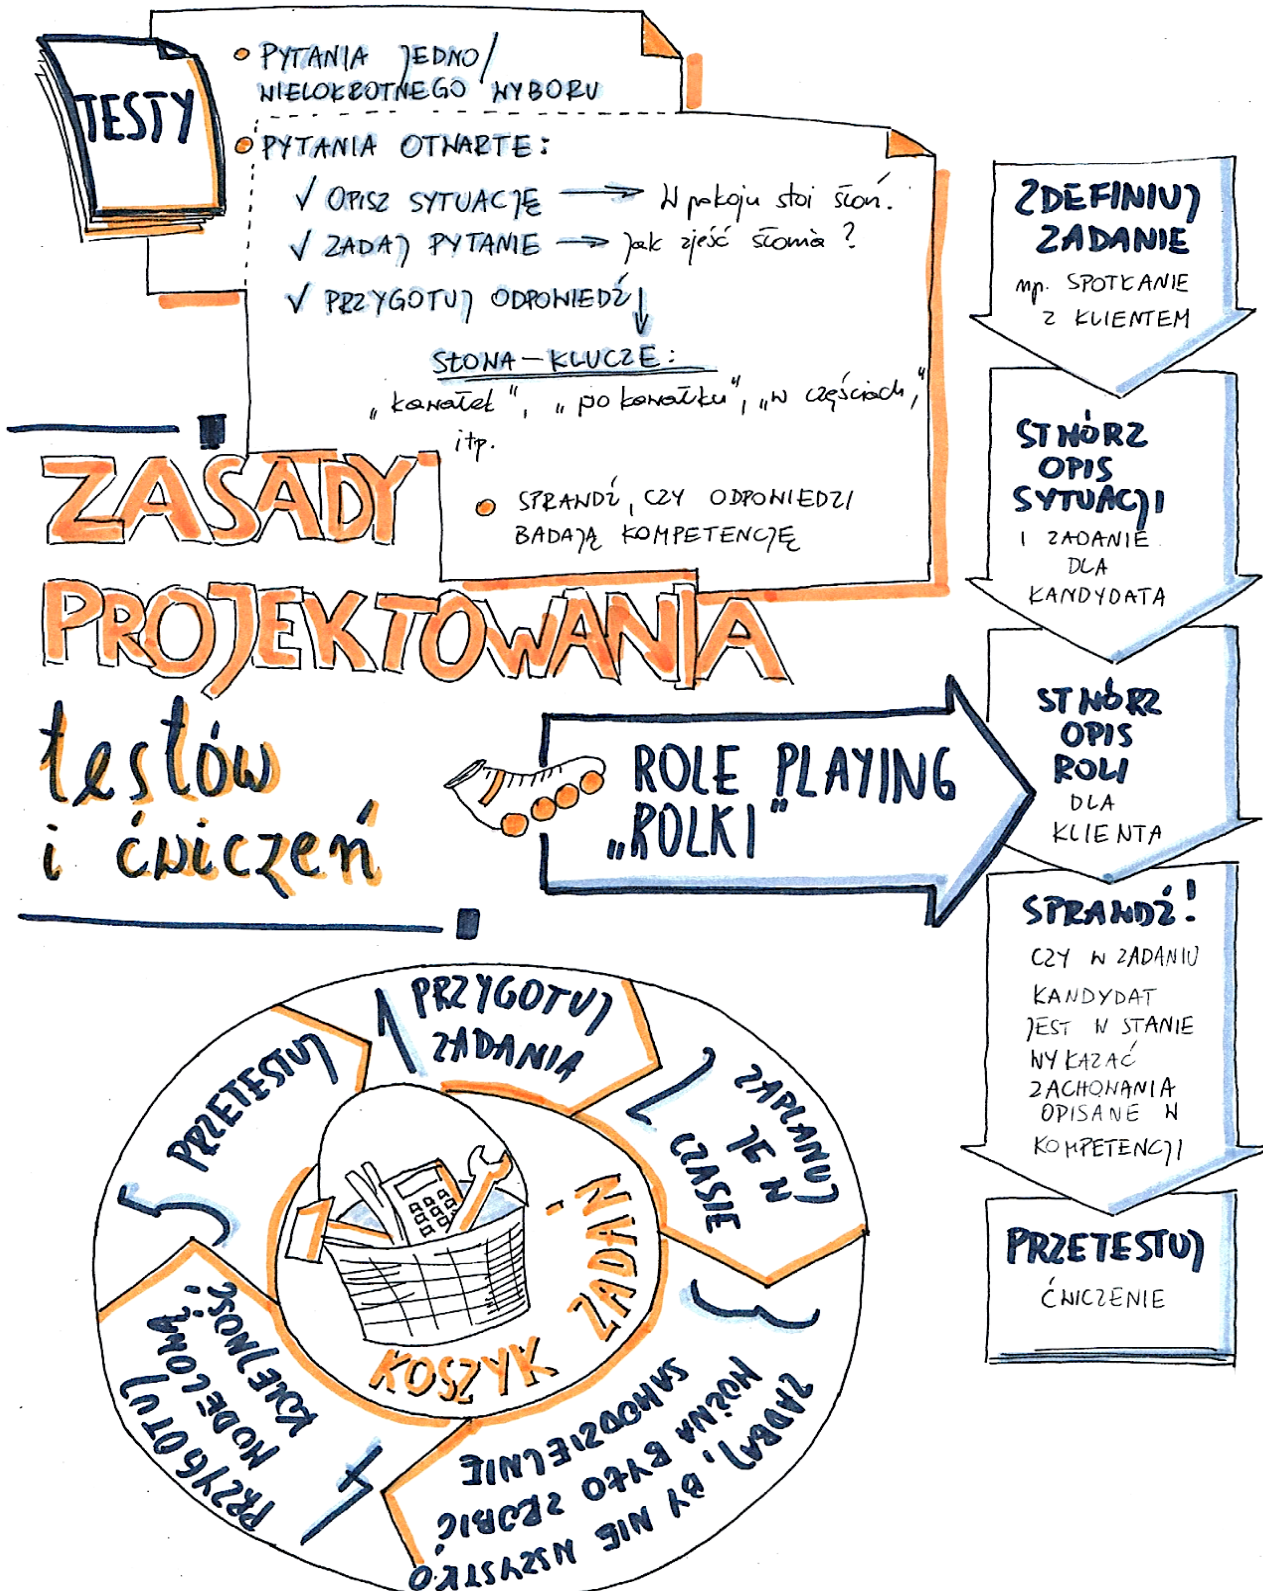 TESTY
PYTANIA JEDNO/
WIELOKROTNEGO WYBORU
PYTANIA OTWARTE:
√ OPISZ SYTUACJĘ → W pokoju stoi słoń.
√ ZADAJ PYTANIE → Jak zjeść słonia?
√ PRZYGOTUJ ODPOWIEDŹ ↓
SŁOWA-KLUCZE:
„kawałek", „po kawałku", „w częściach",
itp.
SPRAWDŹ, CZY ODPOWIEDZI
BADAJĄ KOMPETENCJĘ
ZASADY
PROJEKTOWANIA
testów
i ćwiczeń
ROLE PLAYING
„ROLKI"
ZDEFINIUJ
ZADANIE
np. SPOTKANIE
Z KLIENTEM
STWÓRZ
OPIS
SYTUACJI
I ZADANIE
DLA
KANDYDATA
STWÓRZ
OPIS
ROLI
DLA
KLIENTA
SPRAWDŹ!
CZY W ZADANIU
KANDYDAT
JEST W STANIE
WYKAZAĆ
ZACHOWANIA
OPISANE W
KOMPETENCJI
PRZETESTUJ
ĆWICZENIE
KOSZYK ZADAŃ
1 PRZYGOTUJ
ZADANIA
2 ZAPLANUJ
JE W
CZASIE
3
ZADBAJ, BY NIE WSZYSTKO
MOŻNA BYŁO ZROBIĆ
SAMODZIELNIE
4 PRZYGOTUJ
MODELOWĄ
KOLEJNOŚĆ
5 PRZETESTUJ